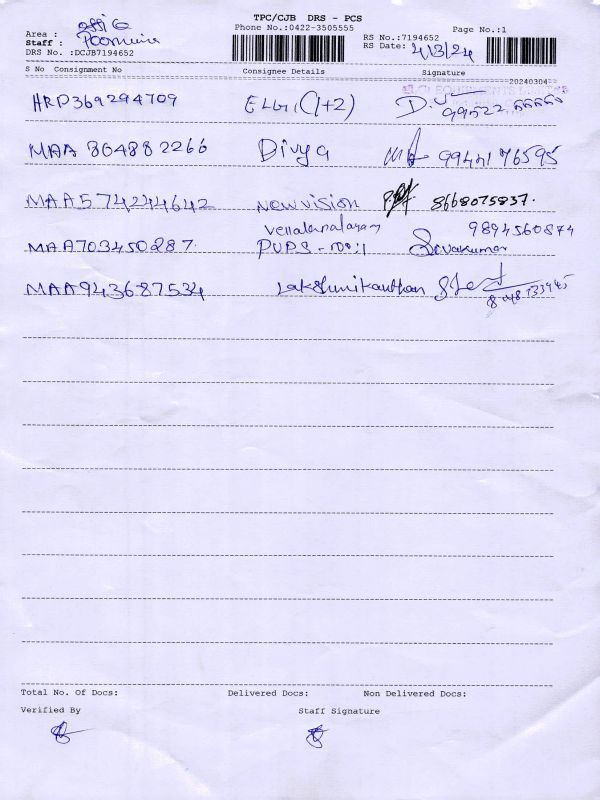 TPC/CJB DRS - PCS
Phone No.:0422-3505555
Page No.:1
Area :
Staff :
RS No.:7194652
DRS No. :DCJB7194652
RS Date: 4/3/24
S No Consignment No Consignee Details Signature
20240304
HRP369294709 ELGi (1+2)
MAA 804882266 Divya 9944176595
MAA574244642 New vision 8668075837.
MAA703450287. 9894560874
Sivakumar
MAA943687534 Lakshmikanthan
Total No. Of Docs: Delivered Docs: Non Delivered Docs:
Verified By Staff Signature